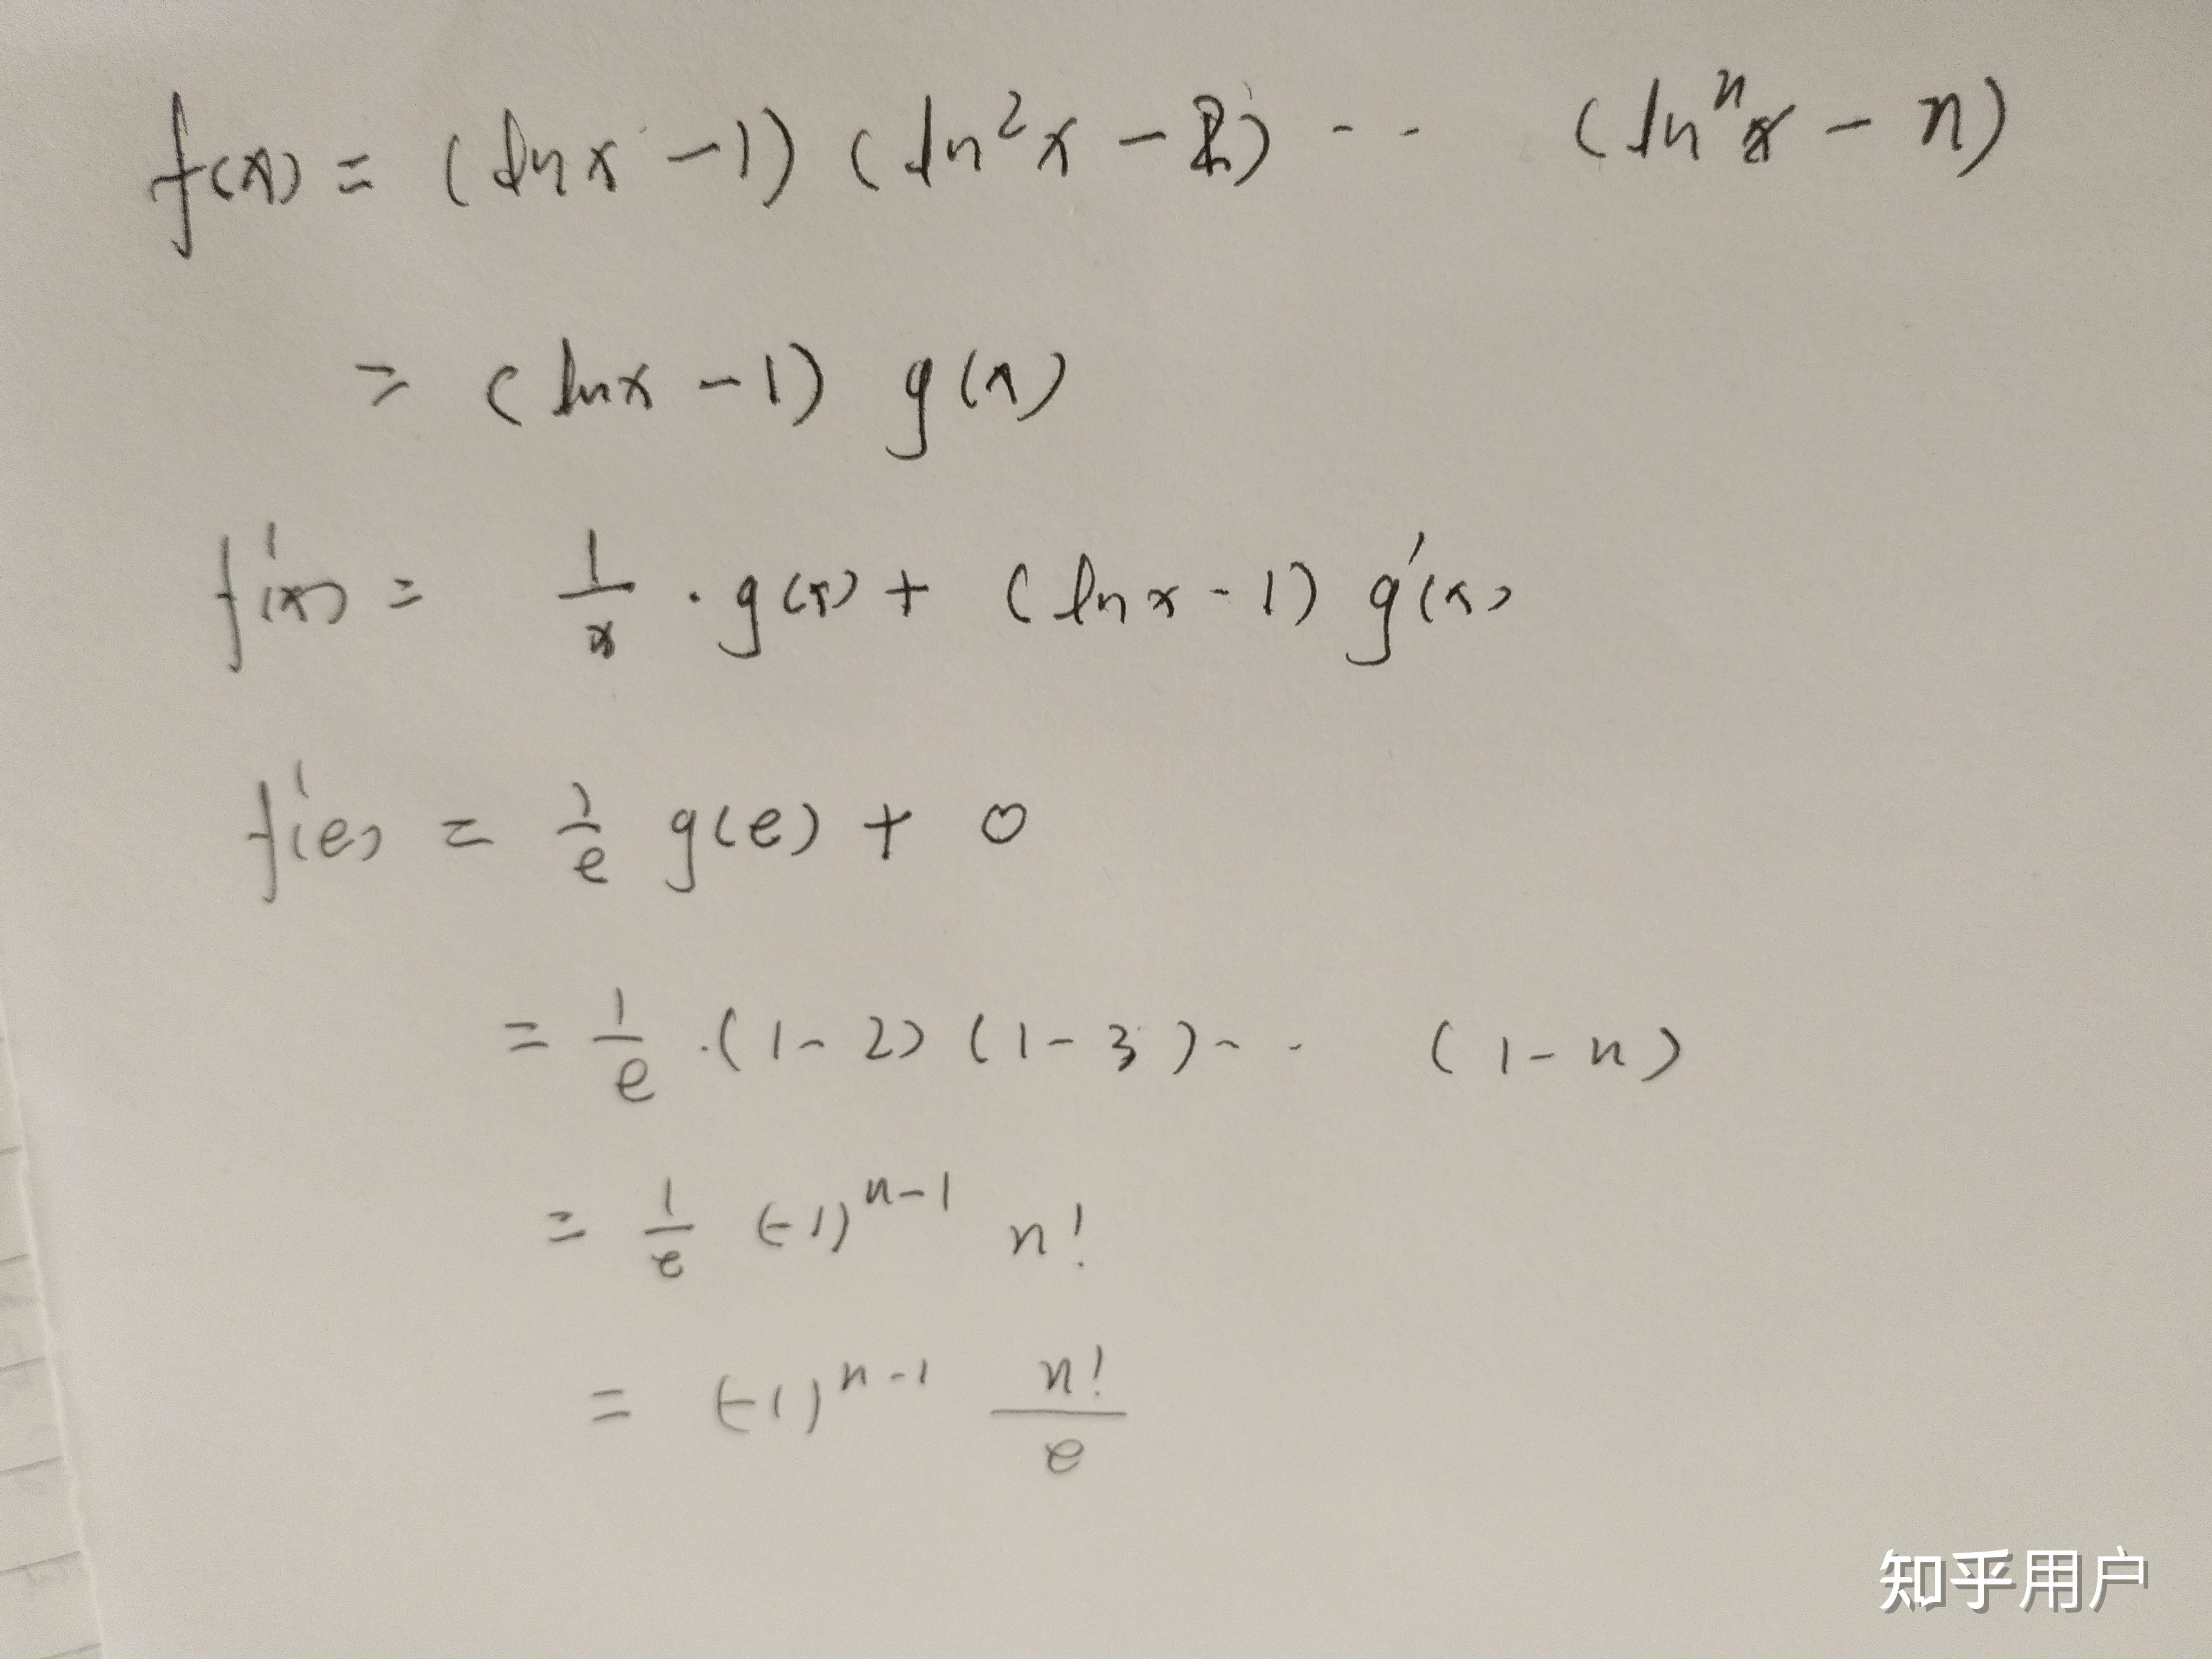 f(x) = (ln x - 1) (ln²x - 2) ·· (lnⁿx - n)
= (ln x - 1) g(x)
f'(x) = 1/x · g(x) + (ln x - 1) g'(x)
f'(e) = 1/e g(e) + 0
= 1/e · (1-2) (1-3) ·· (1-n)
= 1/e (-1)ⁿ⁻¹ n!
= (-1)ⁿ⁻¹ n!/e
知乎用户